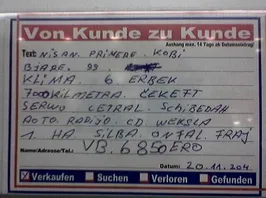 Von Kunde zu Kunde
Aushang max. 14 Tage ab Datumseintrag!
Text: NISAN. PRIMERE. KOBI
BJARE. 99.
KLIMA. 6 ERBEK
7000 KILMETRA. ČEKEFT
SERWO CETRAL. SCHIBEDAH
AOTO RADIJO. CD WEKSLA
1. HA SILBA. ONFAL. FRAJ
Name/Adresse/Tel.: VB. 6850 ERO
Datum: 20.11.204
Verkaufen Suchen Verloren Gefunden